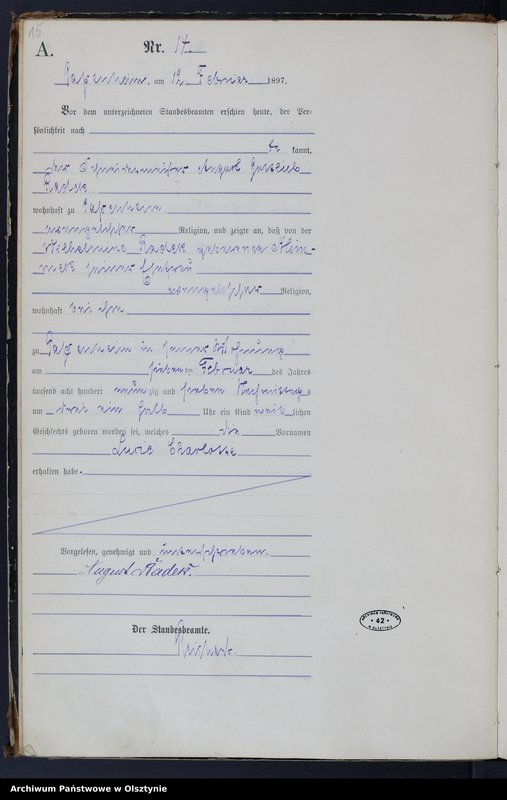 15
A.
Nr. 14.
Passenheim, am 12 Februar 1897.
Vor dem unterzeichneten Standesbeamten erschien heute, der Per-
sönlichkeit nach
be kannt,
der Schneidermeister August Gottlieb
Radek
wohnhaft zu Passenheim
evangelischer Religion, und zeigte an, daß von der
Wilhelmine Radek geborenen
seiner Ehefrau
evangelischer Religion,
wohnhaft bei ihm
zu Passenheim in seiner Wohnung
am sieben ten Februar des Jahres
tausend acht hundert neun zig und sieben Nachmittags
um drei ein halb Uhr ein Kind weib lichen
Geschlechts geboren worden sei, welches die Vornamen
Lucie Charlotte
erhalten habe.
Vorgelesen, genehmigt und unterschrieben.
August Radek.
Der Standesbeamte.
42
Archiwum Państwowe w Olsztynie